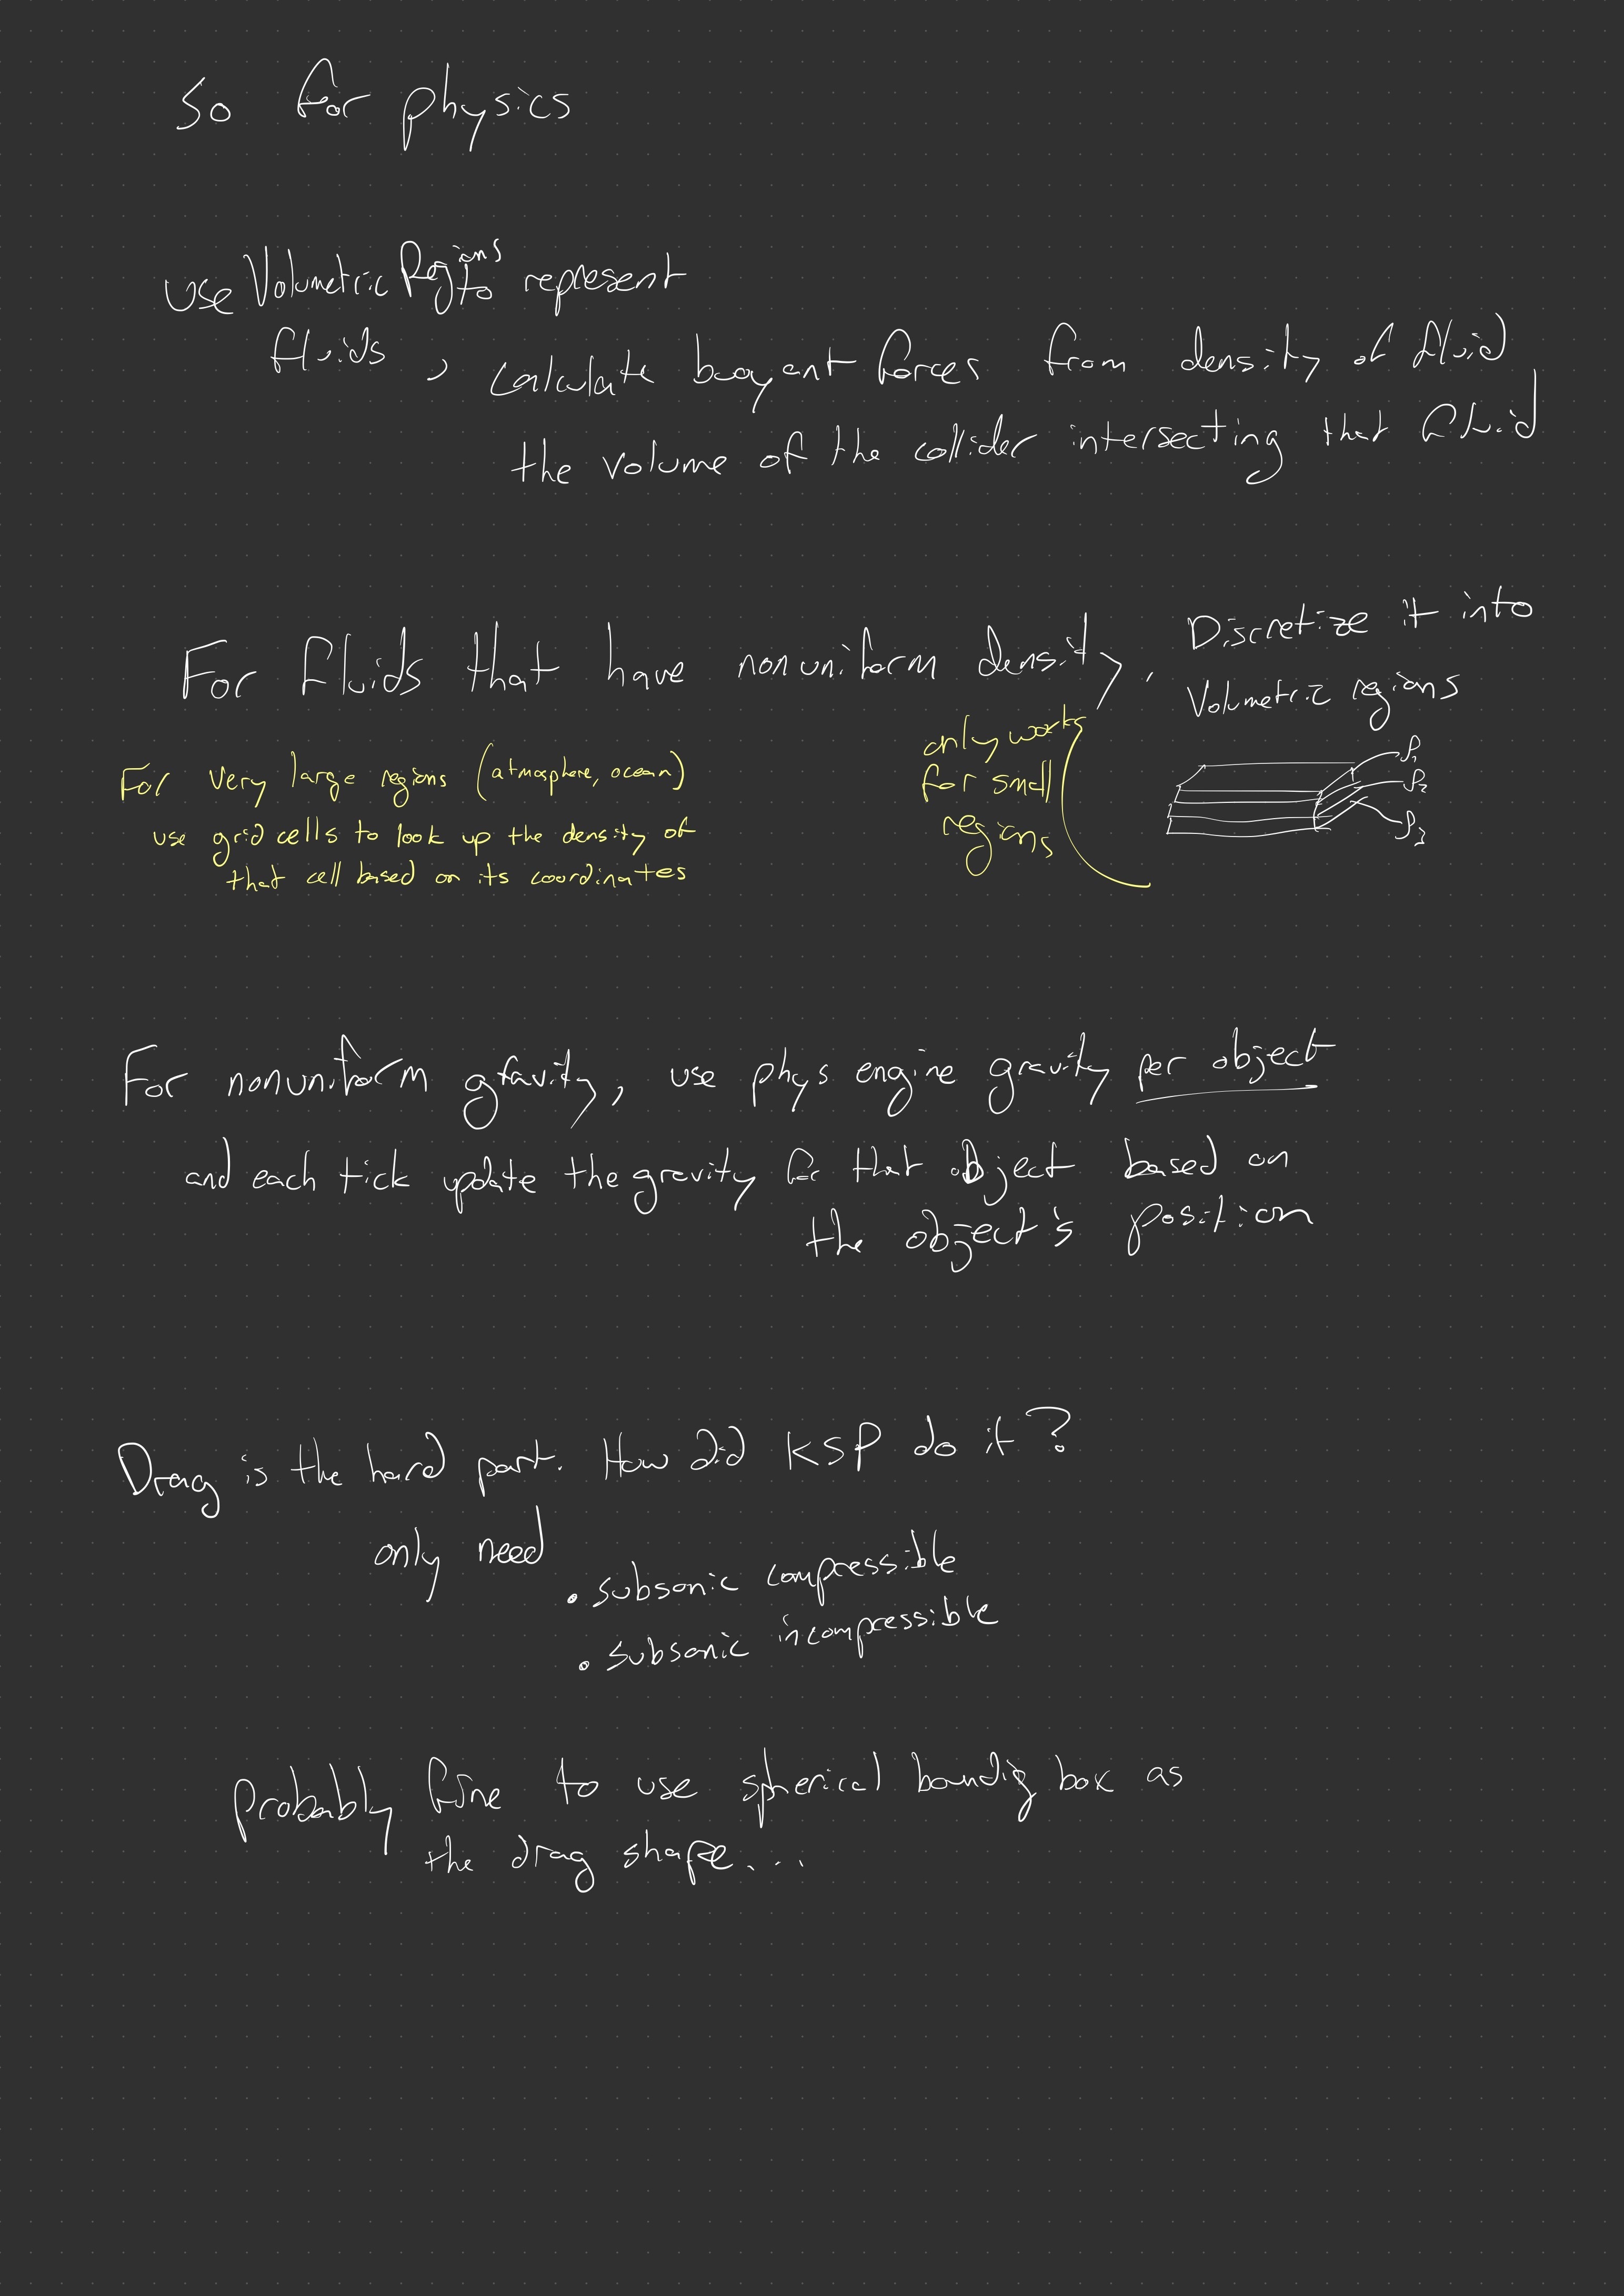 So for physics
use Volumetric Regions to represent
fluids, calculate buoyant forces from density of fluid
the volume of the collider intersecting that fluid
For fluids that have nonuniform density, Discretize it into
Volumetric regions
only works
for small
regions
ρ₁
ρ₂
ρ₃
For very large regions (atmosphere, ocean)
use grid cells to look up the density of
that cell based on its coordinates
For nonuniform gravity, use phys engine gravity per object
and each tick update the gravity for that object based on
the object's position
Drag is the hard part. How did KSP do it?
only need
• subsonic compressible
• subsonic incompressible
probably fine to use spherical bounding box as
the drag shape...